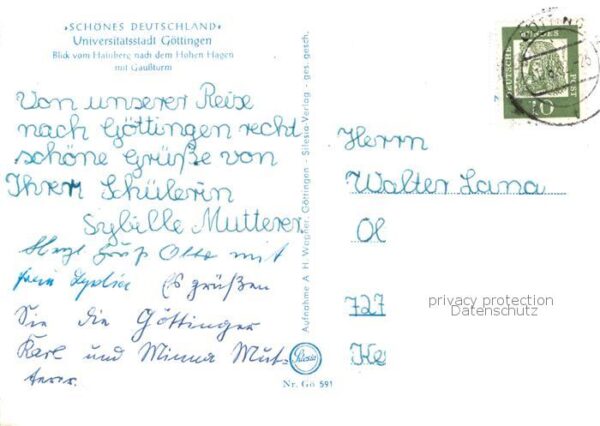 »SCHÖNES DEUTSCHLAND«
Universitätsstadt Göttingen
Blick vom Hainberg nach dem Hohen Hagen
mit Gaußturm
Von unserer Reise
nach Göttingen recht
schöne Grüße von
Ihrer Schülerin
Sybille Mutterer
Herzl. Gruß Otto mit
Es grüßen
Sie die Göttinger
Karl und Minna Mut-
terer.
Aufnahme A. H. Wagner, Göttingen - Silesia-Verlag - ges. gesch.
Silesia
Nr. Gö 591
DEUTSCHE BUNDESPOST
10
Herrn
Walter Lana
Ol
727
Ke
privacy protection
Datenschutz